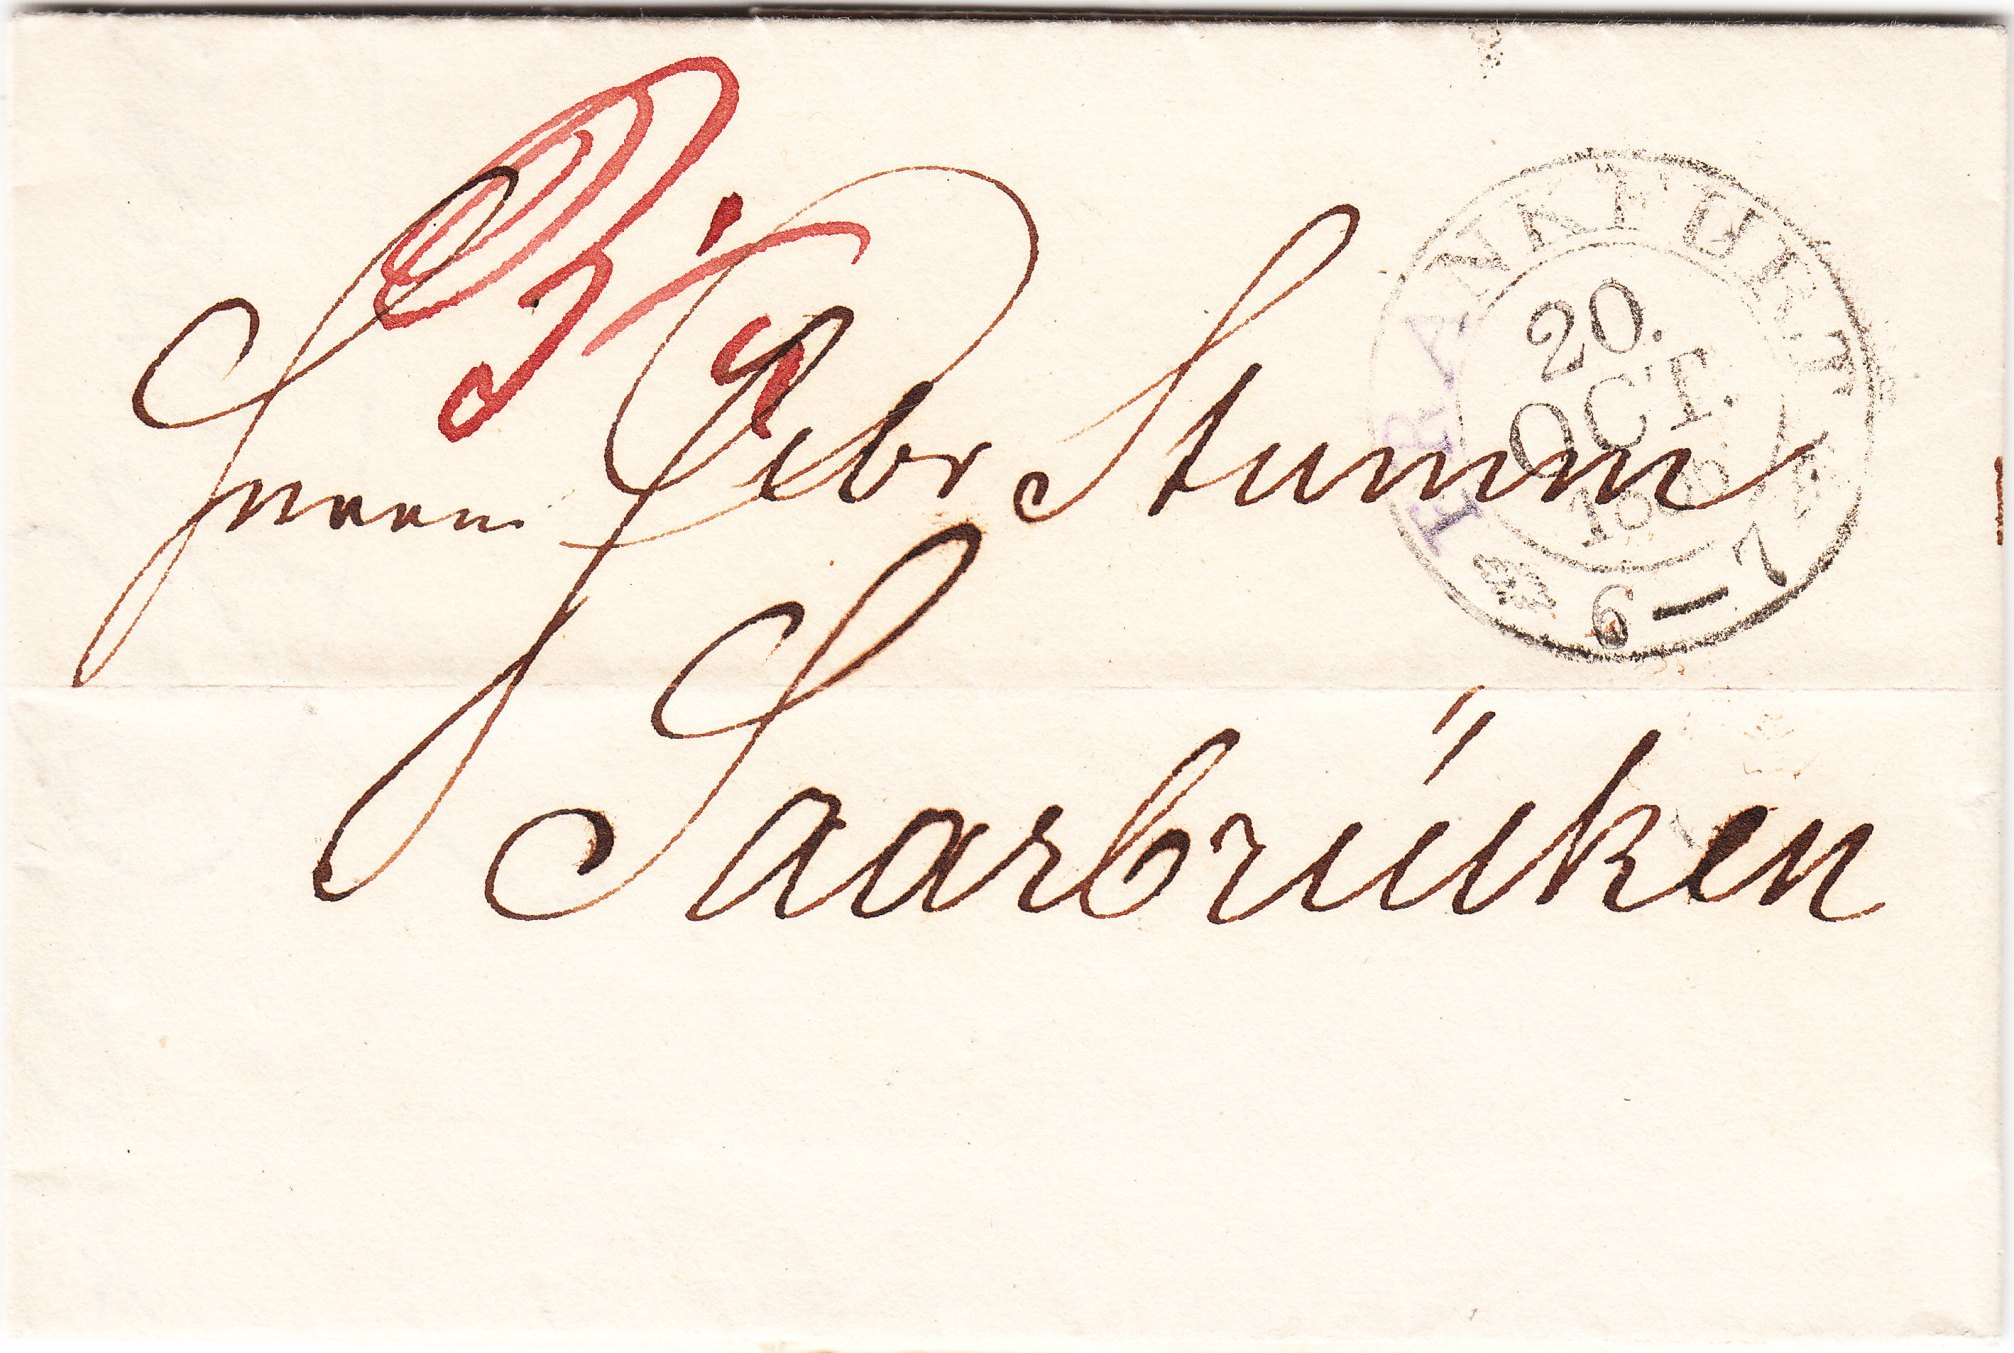 Herren Gebr Stumm
Saarbrüken
FRANKFURT
20.
OCT.
6—7